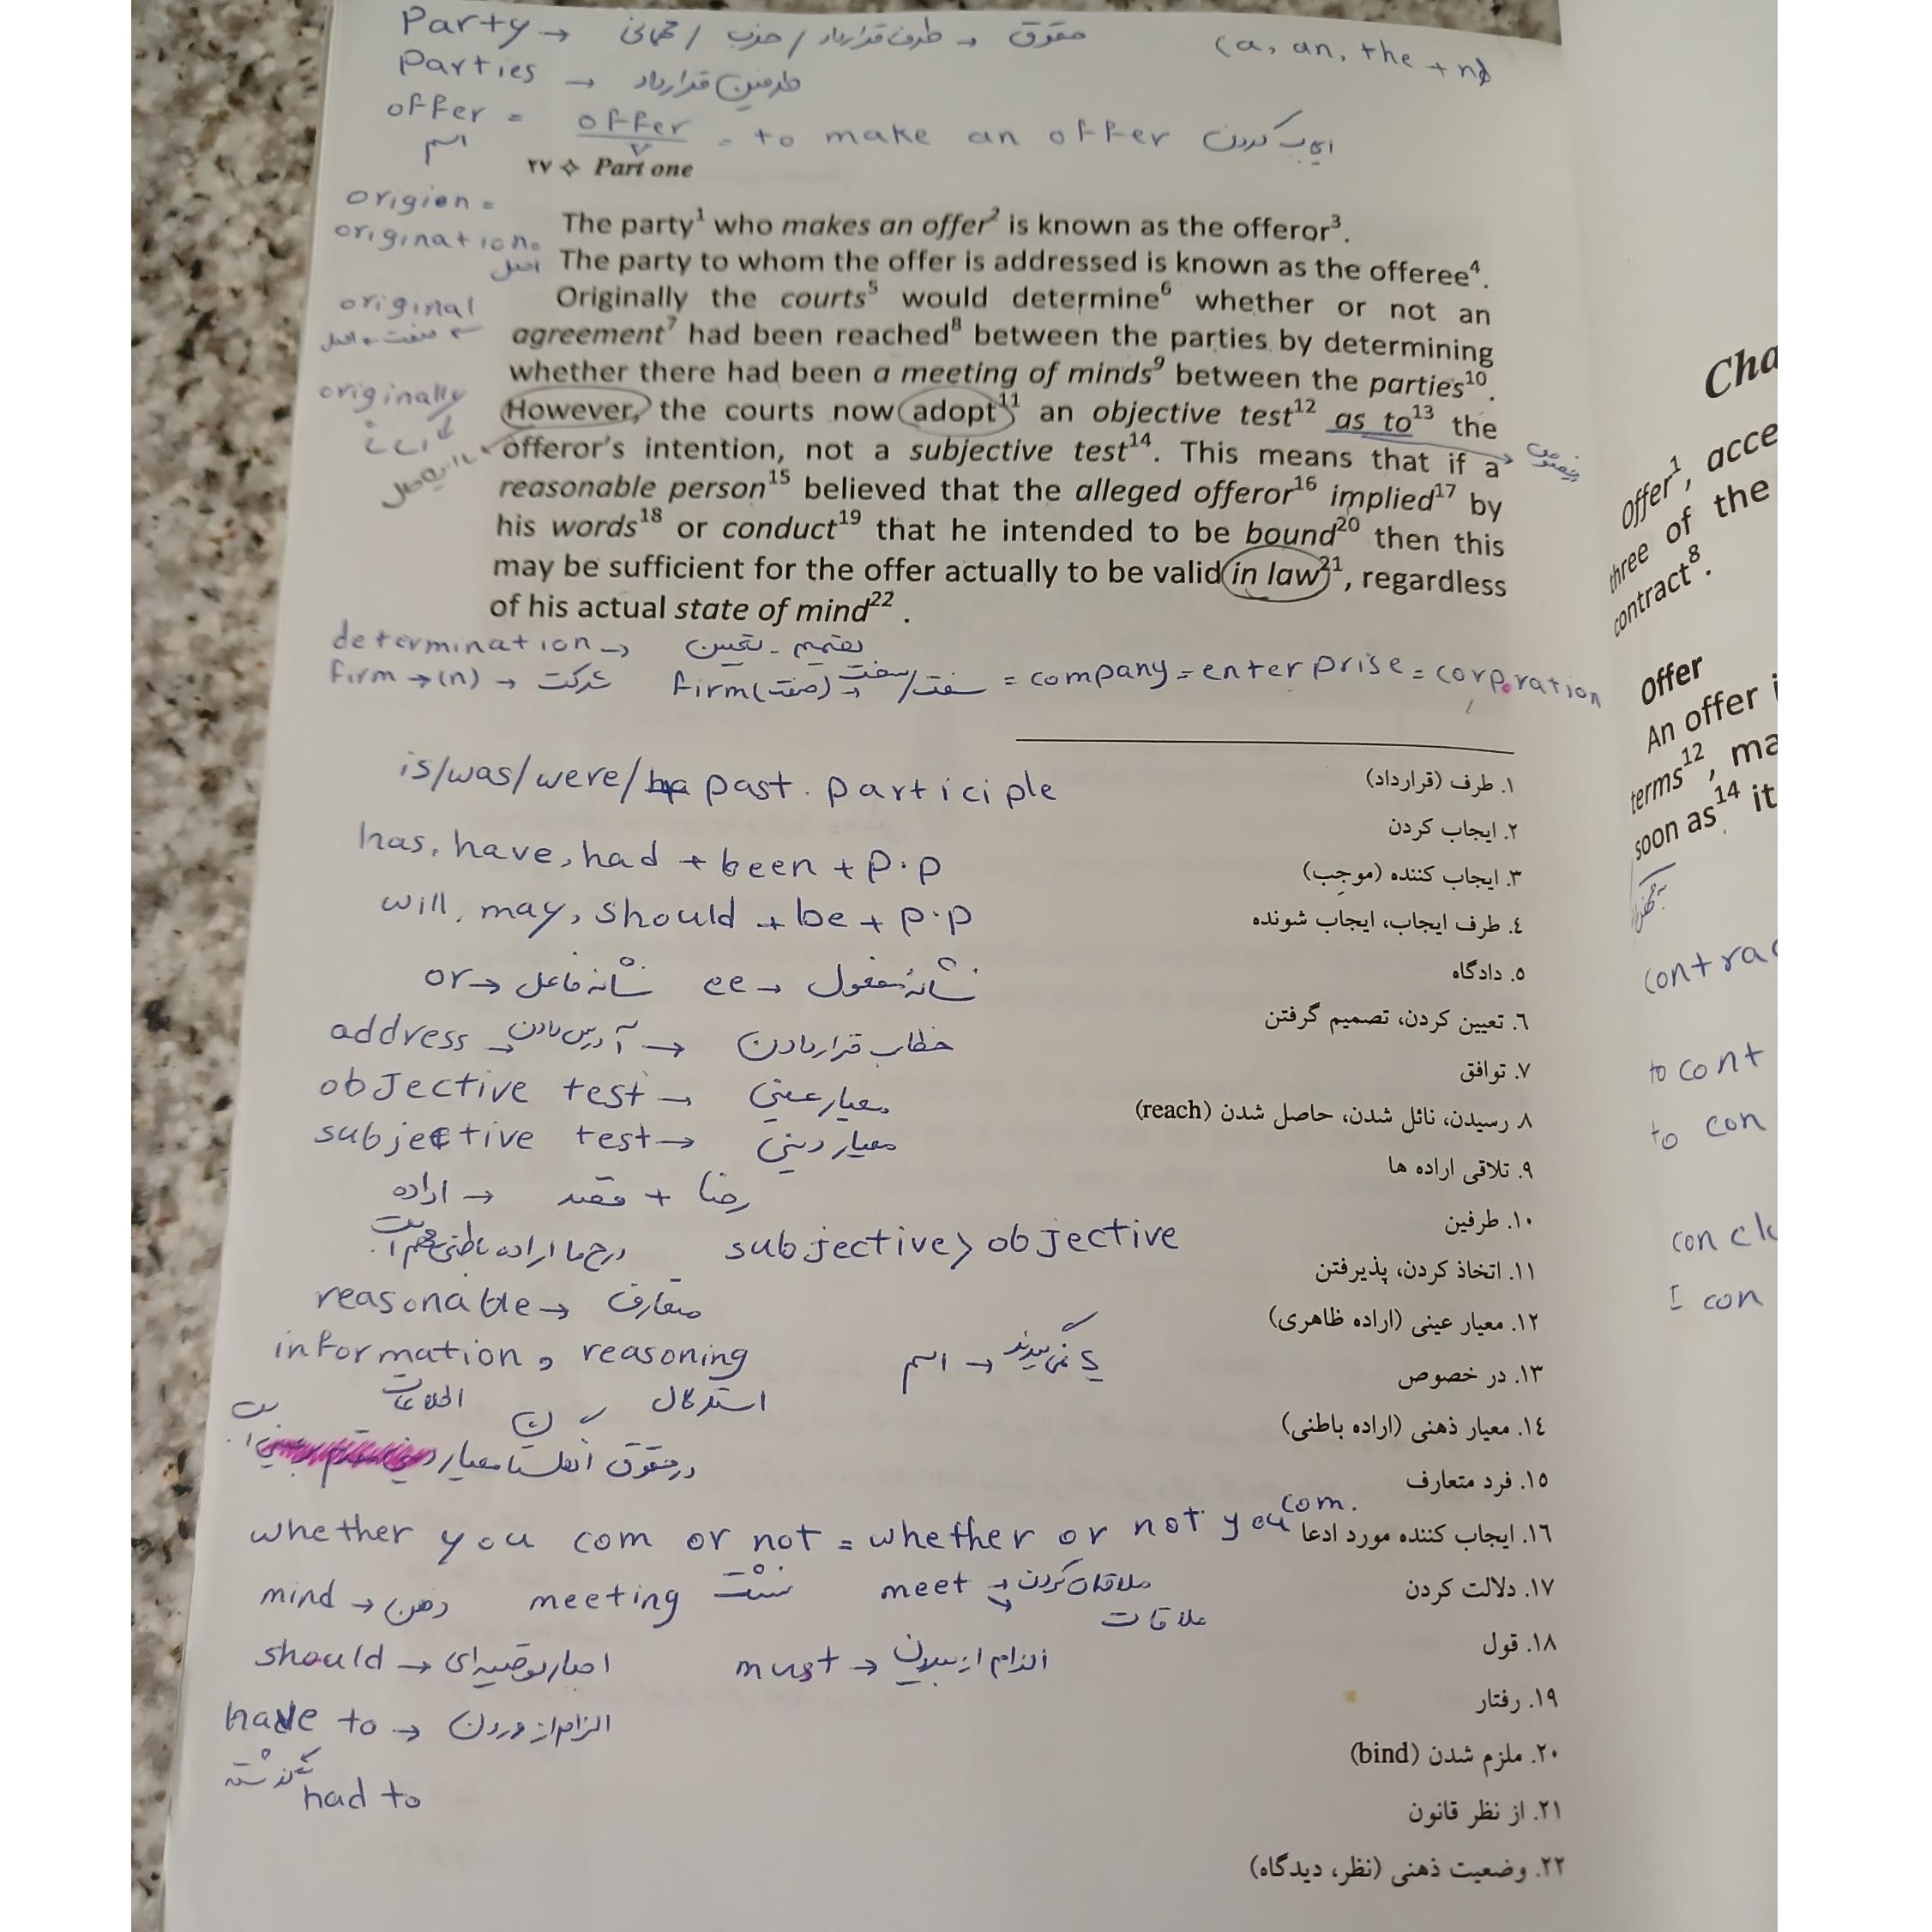 Party → حقوق → طرف قرارداد / حزب / مهمانی
(a, an, the + n)
Parties → طرفین قرارداد
offer = offer = to make an offer ایجاب کردن
اسم v
٢٧ ✧ Part one
origion =
origination =
اصل
original
صفت
originally
The party¹ who makes an offer² is known as the offeror³.
The party to whom the offer is addressed is known as the offeree⁴.
Originally the courts⁵ would determine⁶ whether or not an
agreement⁷ had been reached⁸ between the parties by determining
whether there had been a meeting of minds⁹ between the parties¹⁰.
However, the courts now adopt¹¹ an objective test¹² as to¹³ the
offeror's intention, not a subjective test¹⁴. This means that if a
reasonable person¹⁵ believed that the alleged offeror¹⁶ implied¹⁷ by
his words¹⁸ or conduct¹⁹ that he intended to be bound²⁰ then this
may be sufficient for the offer actually to be valid in law²¹, regardless
of his actual state of mind²².
با این حال
درخصوص
determination → تصمیم - تعیین
firm → (n) → شرکت firm (صفت) → سفت / سخت = company = enterprise = corporation
is/was/were/ past. participle
has, have, had + been + p.p
will, may, should + be + p.p
or → نشانه فاعل ee → نشانه مفعول
address → آدرس دادن → خطاب قرار دادن
objective test → معیار عینی
subjective test → معیار ذهنی
اراده → قصد + رضا
در ح ما اراده باطنی مهم است. subjective > objective
reasonable → متعارف
information, reasoning اسم → s نمی‌گیرند
اطلاعات استدلال
در حقوق انگلستان معیار
whether you com or not = whether or not you com.
mind → ذهن meeting نشست meet → ملاقات کردن
ملاقات
should → اجبار توصیه ای must → الزام از بیرون
have to → الزام از درون
گذشته had to
١. طرف (قرارداد)
٢. ایجاب کردن
٣. ایجاب کننده (موجِب)
٤. طرف ایجاب، ایجاب شونده
٥. دادگاه
٦. تعیین کردن، تصمیم گرفتن
٧. توافق
٨. رسیدن، نائل شدن، حاصل شدن (reach)
٩. تلاقی اراده ها
١٠. طرفین
١١. اتخاذ کردن، پذیرفتن
١٢. معیار عینی (اراده ظاهری)
١٣. در خصوص
١٤. معیار ذهنی (اراده باطنی)
١٥. فرد متعارف
١٦. ایجاب کننده مورد ادعا
١٧. دلالت کردن
١٨. قول
١٩. رفتار
٢٠. ملزم شدن (bind)
٢١. از نظر قانون
٢٢. وضعیت ذهنی (نظر، دیدگاه)
Cha
Offer¹, acce
three of the
contract⁸.
Offer
An offer i
terms¹², ma
soon as¹⁴ it
contrac
to cont
to con
conclu
I con